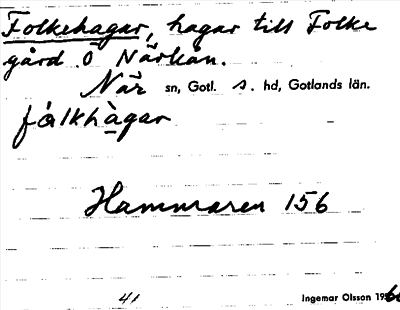 Folkehagar, hagar till Folke
gård Ö Närkån.
När sn, Gotl. s. hd, Gotlands län.
fålkhàgar
Hammaren 156
41
Ingemar Olsson 1960